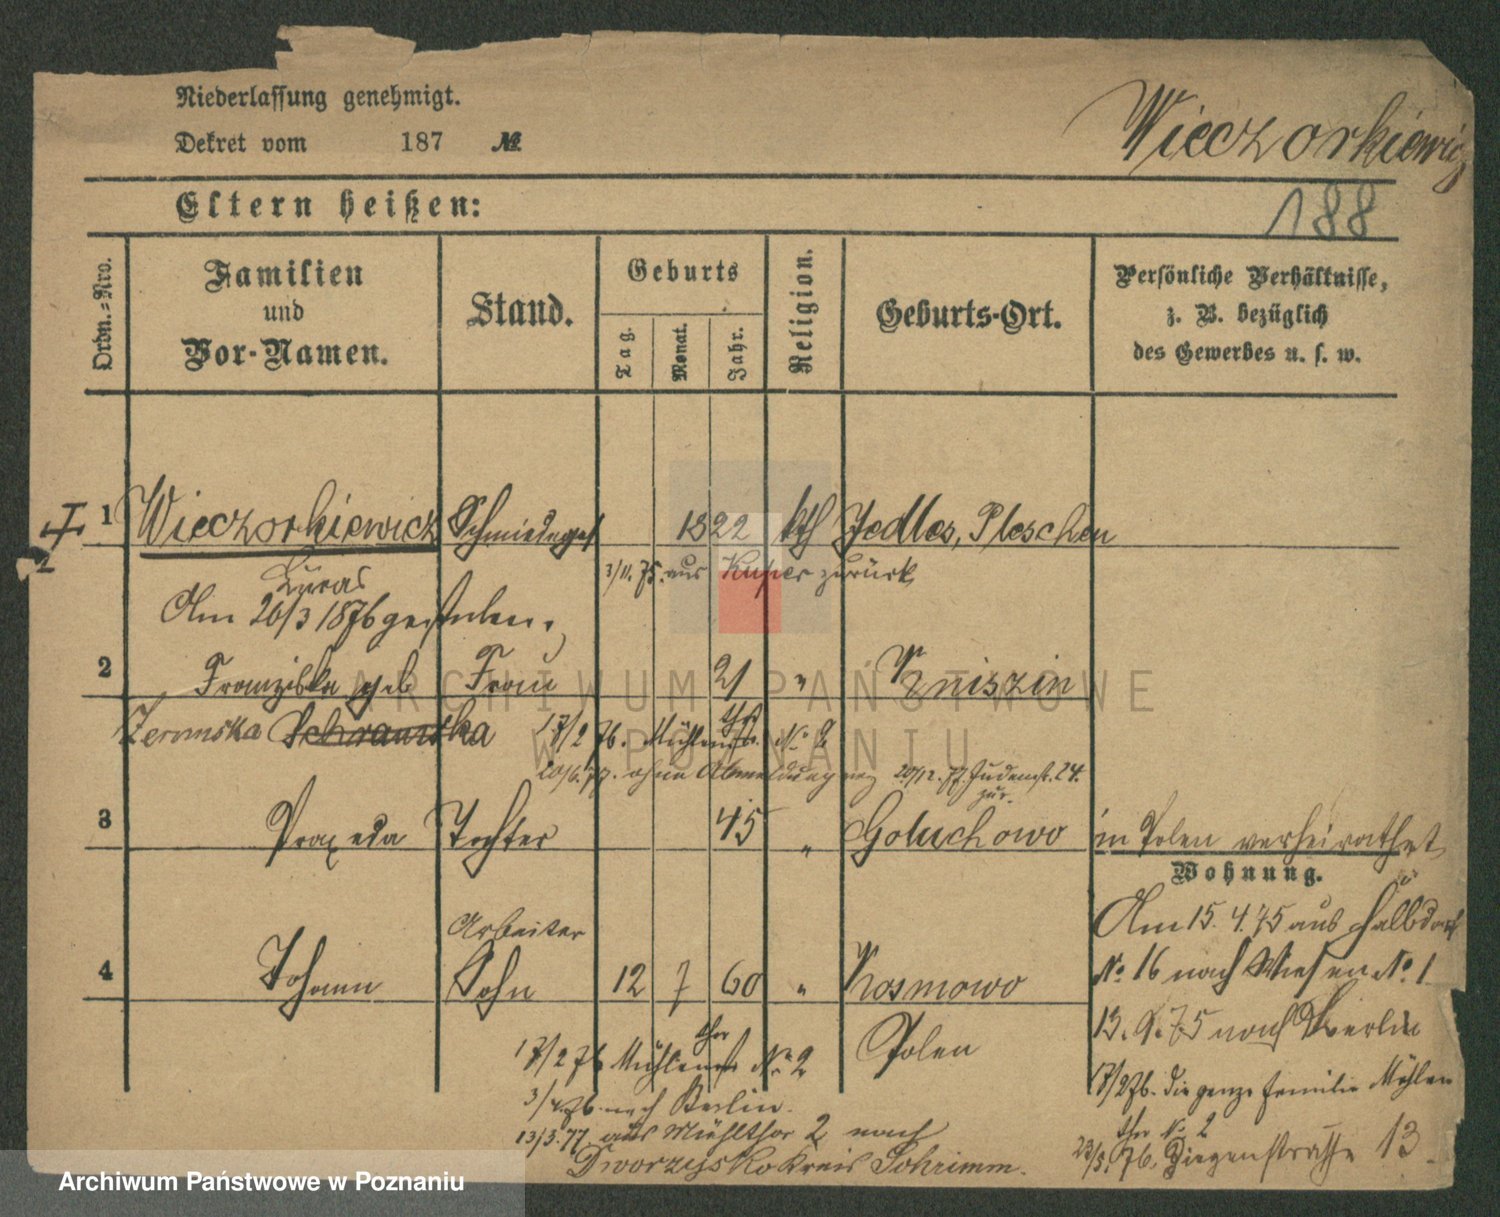 Niederlassung genehmigt.
Dekret vom 187 №
Wieczorkiewicz
188
Eltern heißen:
Ordn.-Nro.
Familien
und
Vor-Namen.
Stand.
Geburts
Tag.
Monat.
Jahr.
Religion.
Geburts-Ort.
Persönliche Verhältnisse,
z. B. bezüglich
des Gewerbes u. s. w.
1 Wieczorkiewicz Schmiedeges 1822 kth Jedlec, Pleschen
Lucas 3/11. 75. aus zurück
Am 26/3 1876 gestorben.
2 Franziska geb Frau 21 " Kniszin
Zeromska Schramska 17/2 76. Mühlenthorst. No 2
20/6. 77. ohne Abmeldung weg 20/12. 77. Judenst. 24.
zur.
3 Praxeda Tochter 45 " Goluchowo in Polen verheirathet
Wohnung.
Arbeiter
4 Johann Sohn 12 7 60 " Kosmowo
Polen
Am 15. 4. 75 aus Halbdorf
No 16 nach Wiesen No 1
13. 9. 75 nach Berlin
17/2 76. die ganze Familie Mühlen
thor No 2
23/5. 76. Ziegenstrasse 13
17/2 76 Mühlenthorst No 2
3/4 76. nach Berlin.
13/3. 77. aus Mühlthor 2 nach
Dworzysko Kreis Schrimm.
ARCHIWUM PAŃSTWOWE
W POZNANIU
Archiwum Państwowe w Poznaniu